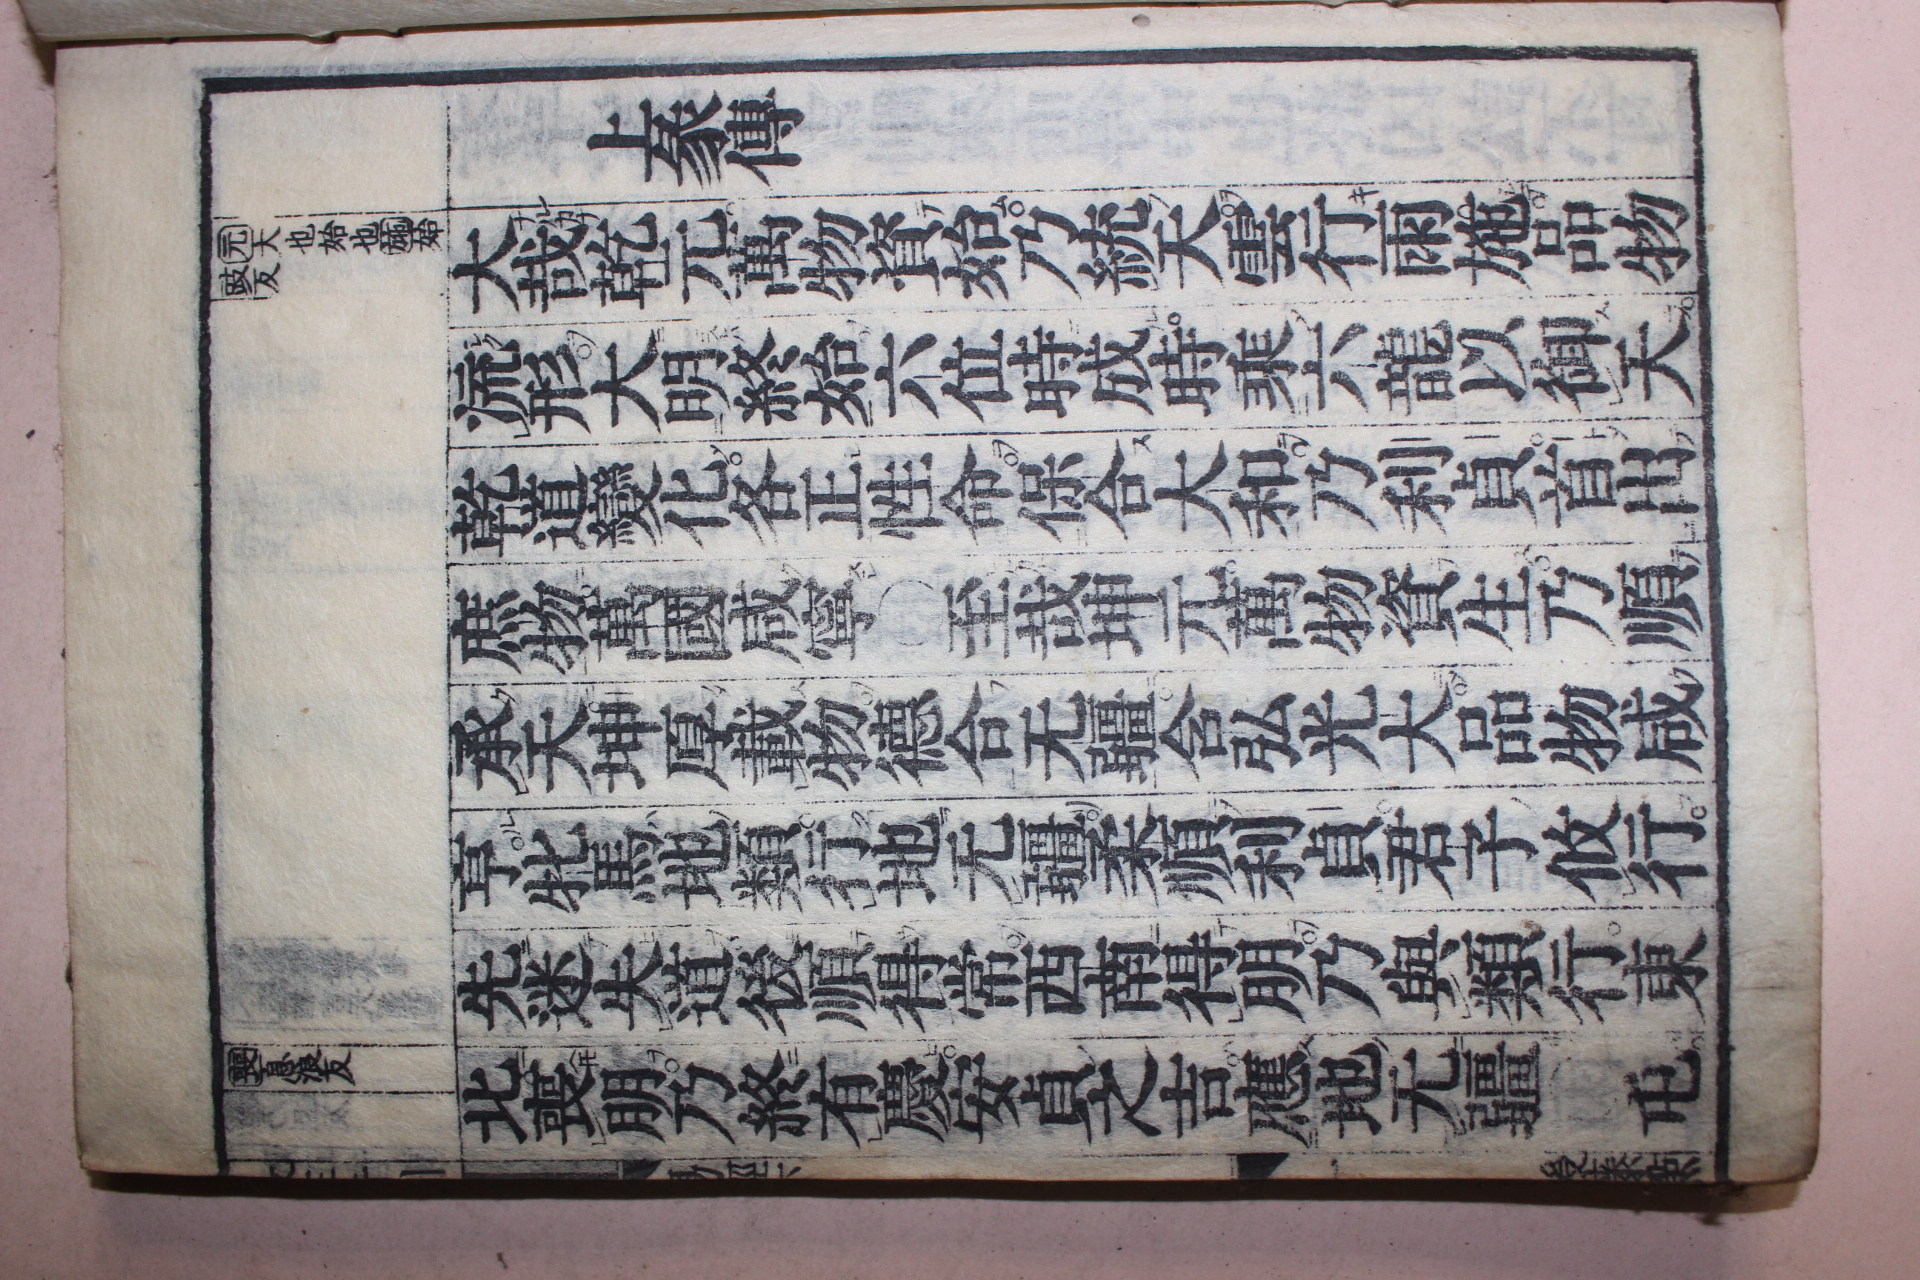 上彖傳
大哉乾元萬物資始乃統天雲行雨施品物
流形大明終始六位時成時乘六龍以御天
乾道變化各正性命保合大和乃利貞首出
庶物萬國咸寧〇至哉坤元萬物資生乃順
承天坤厚載物德合无疆含弘光大品物咸
亨牝馬地類行地无疆柔順利貞君子攸行
先迷失道後順得常西南得朋乃與類行東
北喪朋乃終有慶安貞之吉應地无疆 屯
元大也始也施始
豉反
喪息浪反
後藤點